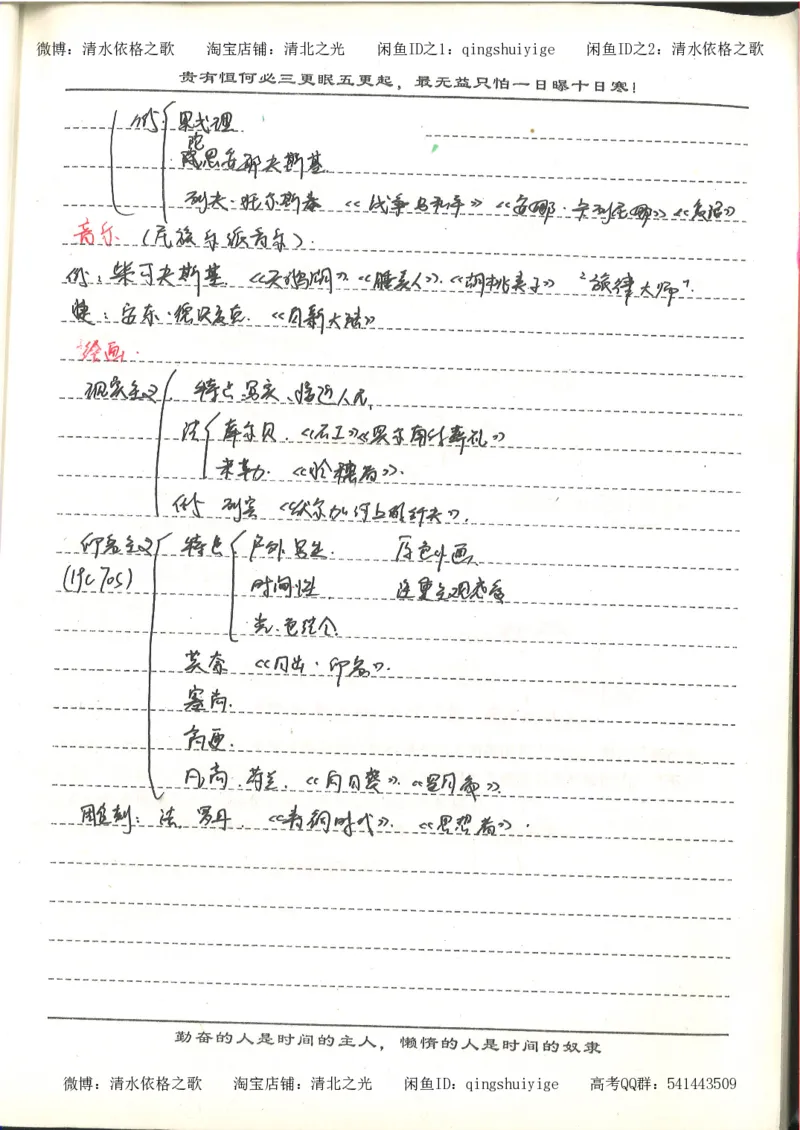 微博：清水依格之歌 淘宝店铺：清北之光 闲鱼ID之1：qingshuiyige 闲鱼ID之2：清水依格之歌
贵有恒何必三更眠五更起，最无益只怕一日曝十日寒！
俄 果戈理
陀思妥耶夫斯基
列夫·托尔斯泰 《战争与和平》《安娜·卡列尼娜》《复活》
音乐 （民族乐派音乐）.
俄：柴可夫斯基 《天鹅湖》.《睡美人》.《胡桃夹子》 "旋律大师".
捷：安东·德沃夏克. 《自新大陆》
绘画.
现实主义 特点 写实、接近人民.
法 库尔贝. 《石工》《奥尔南的葬礼》
米勒. 《拾穗者》.
俄 列宾 《伏尔加河上的纤夫》.
印象主义 特点 户外写生. 原色作画
(19c 70s) 时间性. 注重主观感受
光.色结合.
莫奈 《日出·印象》.
塞尚.
高更.
凡高.荷兰. 《向日葵》.《星月夜》.
雕刻：法 罗丹. 《青铜时代》.《思想者》.
勤奋的人是时间的主人，懒惰的人是时间的奴隶
微博：清水依格之歌 淘宝店铺：清北之光 闲鱼ID：qingshuiyige 高考QQ群：541443509